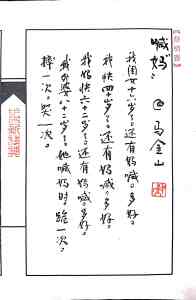 喊妈
马金山
我闺女十六岁了。还有妈喊。多好。
我快四十岁了。还有妈喊。多好。
我妈快六十二岁了。还有妈喊。多好。
我外婆八十二岁了。她喊妈时。跪一次。
捧一次。哭一次。